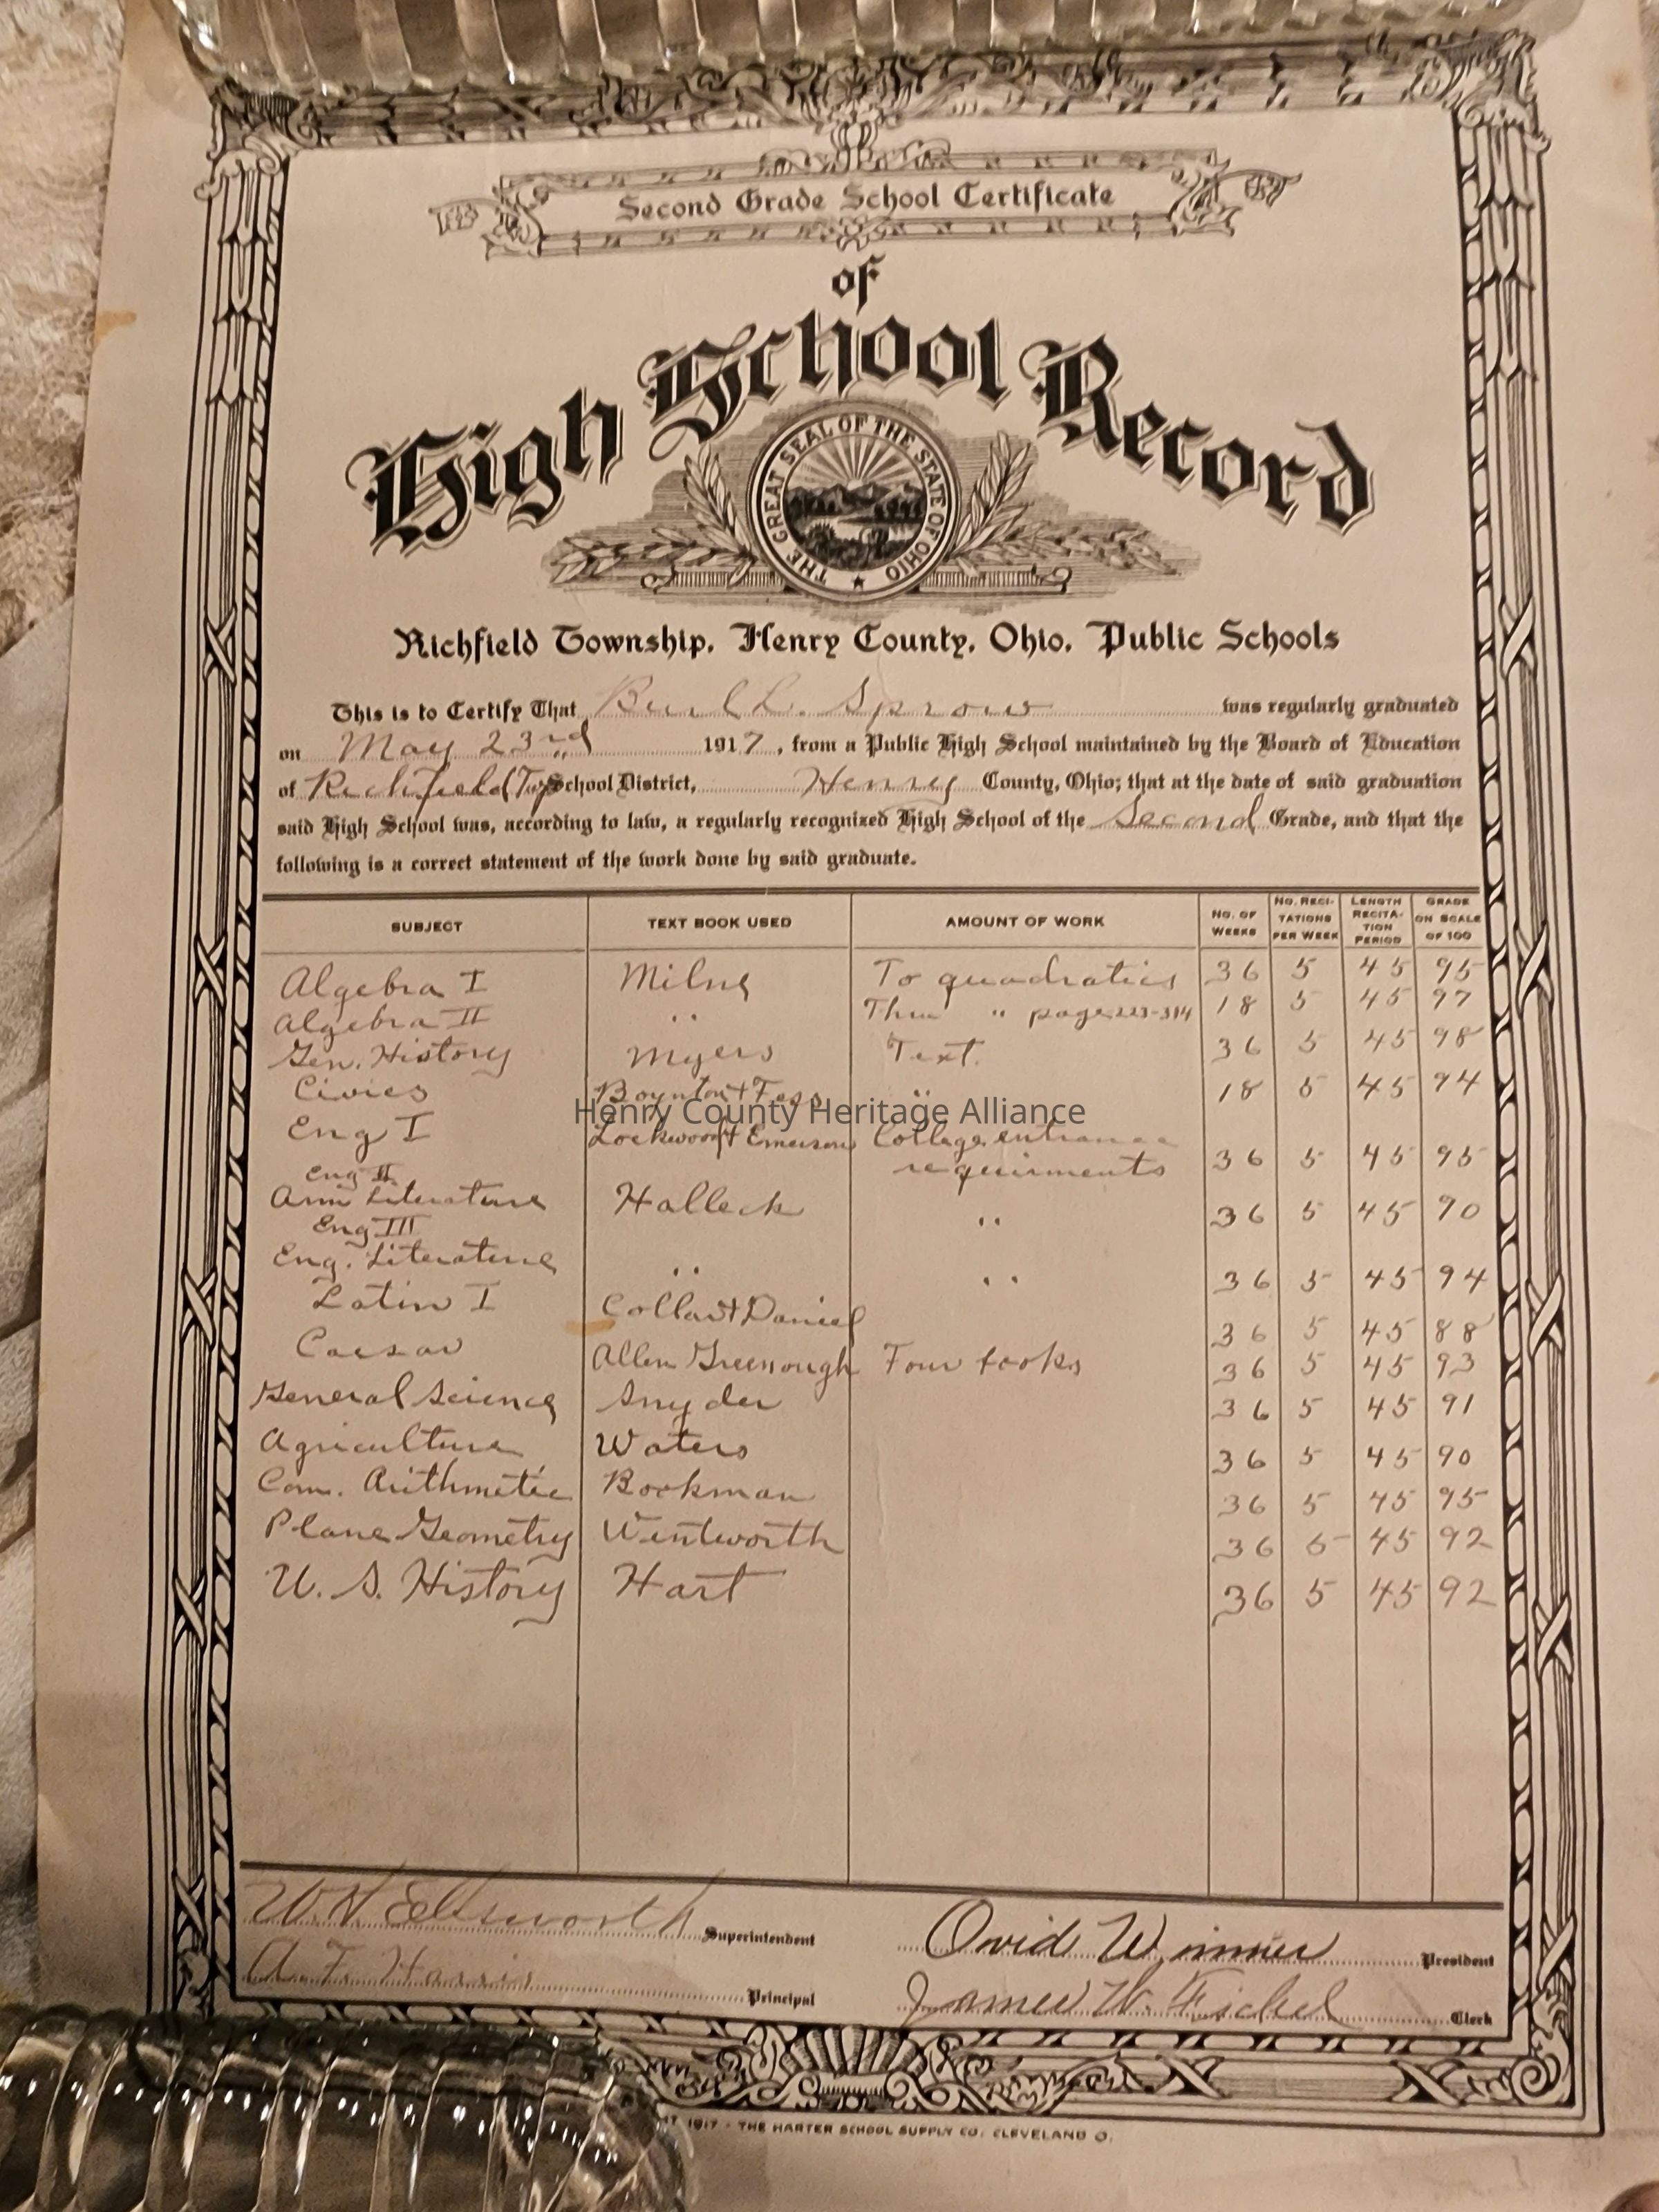 Second Grade School Certificate
of
High School Record
THE GREAT SEAL OF THE STATE OF OHIO
Richfield Township, Henry County, Ohio, Public Schools
This is to Certify That Burl L. Sprow was regularly graduated
on May 23rd 1917, from a Public High School maintained by the Board of Education
of Richfield Twp School District, Henry County, Ohio; that at the date of said graduation
said High School was, according to law, a regularly recognized High School of the Second Grade, and that the
following is a correct statement of the work done by said graduate.
SUBJECT TEXT BOOK USED AMOUNT OF WORK NO. OF WEEKS NO. RECI-TATIONS PER WEEK LENGTH RECITA-TION PERIOD GRADE ON SCALE OF 100
Algebra I Milne To quadratics 36 5 45 95
Algebra II " Thru " page 223-314 18 5 45 97
Gen. History Myers Text. 36 5 45 98
Civics Boynton + Fess " 18 5 45 94
Henry County Heritage Alliance
Eng I Lockwood + Emerson College entrance
requirments 36 5 45 95
Eng II
Am Literature Halleck " 36 5 45 90
Eng III
Eng. Literature " " 36 5 45 94
Latin I Collar + Daniel 36 5 45 88
Caesar Allen Greenough Four books 36 5 45 93
General Science Snyder 36 5 45 91
Agriculture Waters 36 5 45 90
Com. Arithmetic Bookman 36 5 45 95
Plane Geometry Wentworth 36 5 45 92
U. S. History Hart 36 5 45 92
W. H. Ellsworth Superintendent
Ovid Wimmer President
A. F. Harris Principal
James W. Fickel Clerk
1917 - THE HARTER SCHOOL SUPPLY CO. CLEVELAND O.